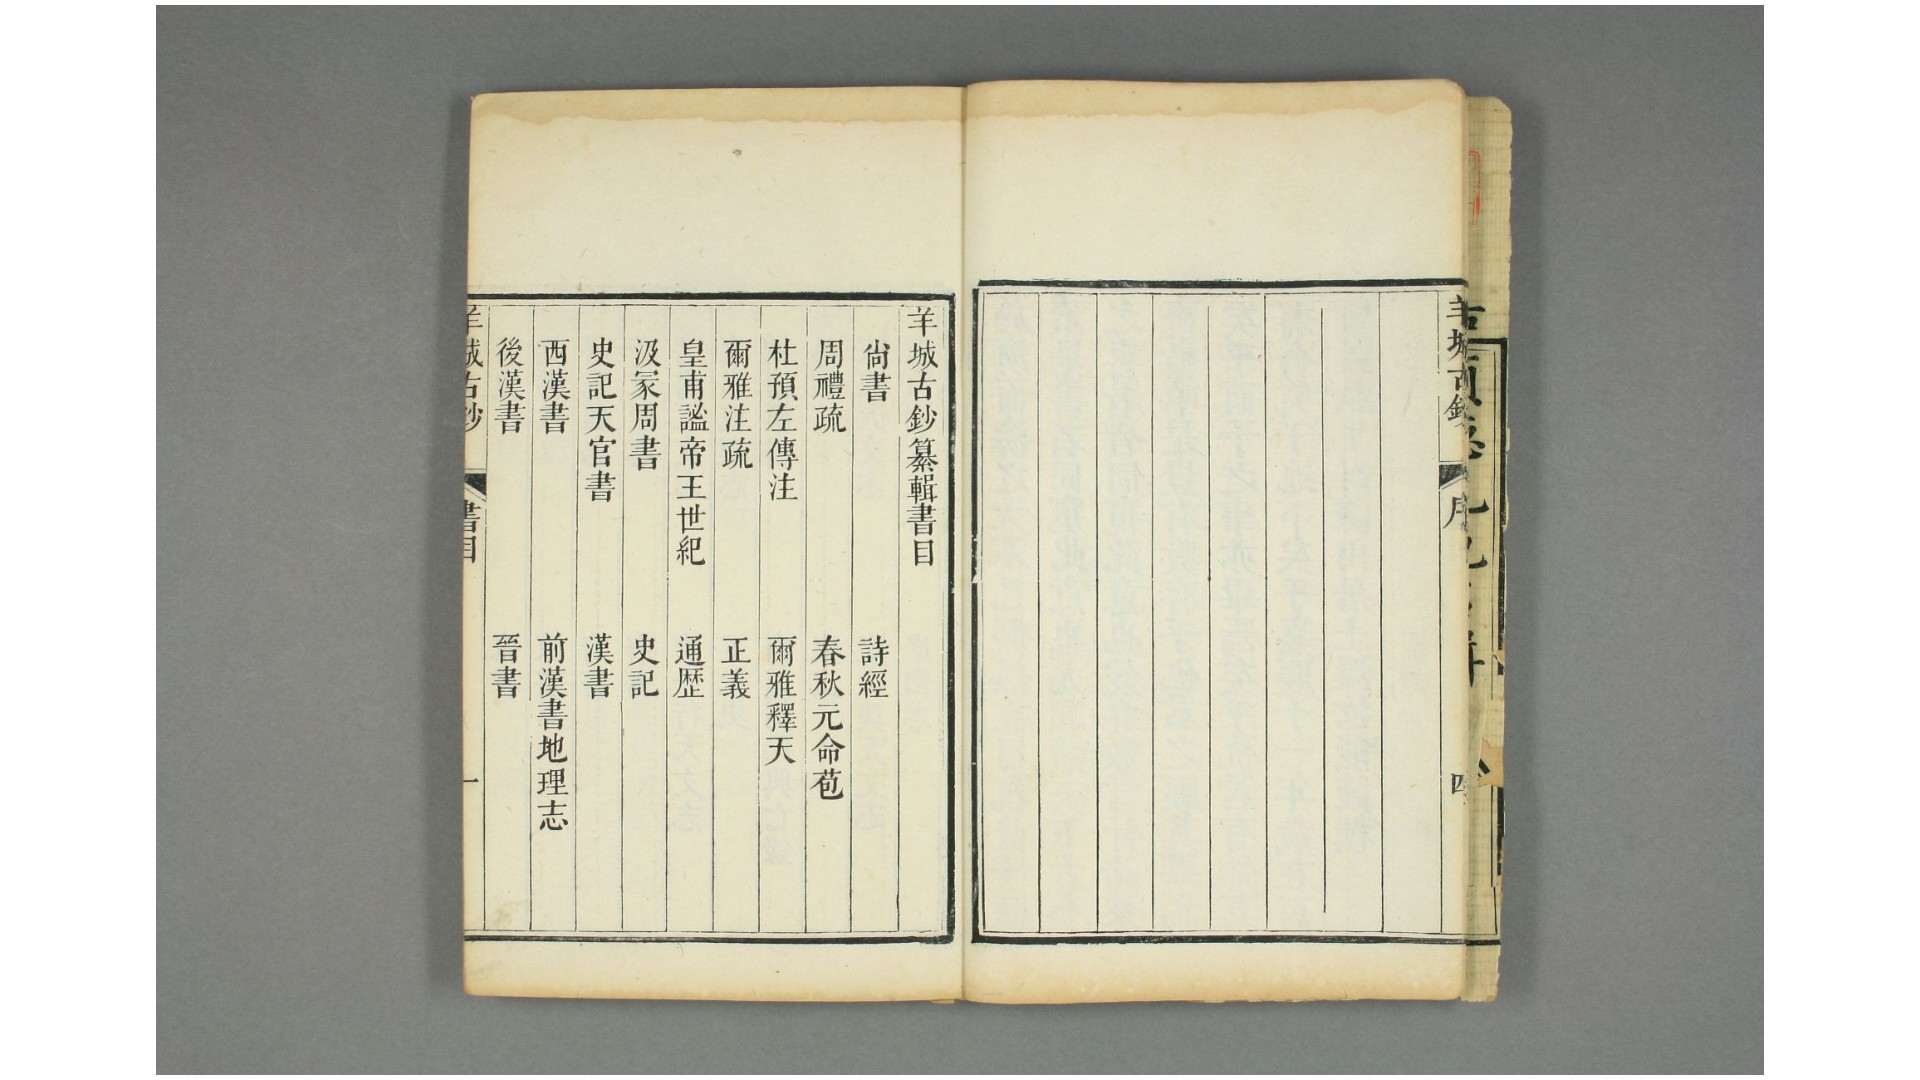 羊城古鈔
序
四
羊城古鈔纂輯書目
尙書
詩經
周禮疏
春秋元命苞
杜預左傳注
爾雅釋天
爾雅注疏
正義
皇甫謐帝王世紀
通歷
汲冡周書
史記
史記天官書
漢書
西漢書
前漢書地理志
後漢書
晉書
羊城古鈔
書目
一